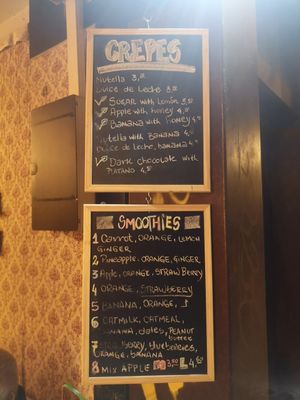 CREPES
Nutella 3,
Dulce de Leche 3,
SUGAR with Lemon 3,
Apple with honey 4,
Banana with honey 4,
Nutella with BANANA 4,
Dulce de Leche, banana 4,
Dark chocolate with
PLATANO 4,
SMOOTHIES
1 Carrot, ORANGE, LEMON
GINGER
2 Pineapple, ORANGE, GINGER
3 Apple, ORANGE, STRAWBERRY
4 ORANGE, STRAWBERRY
5 BANANA, ORANGE,
6 OATMILK, OATMEAL,
BANANA, dates, PEANUT
butter
7 berry, blueberries,
ORANGE, BANANA
8 MIX APPLE M 3, L 4,